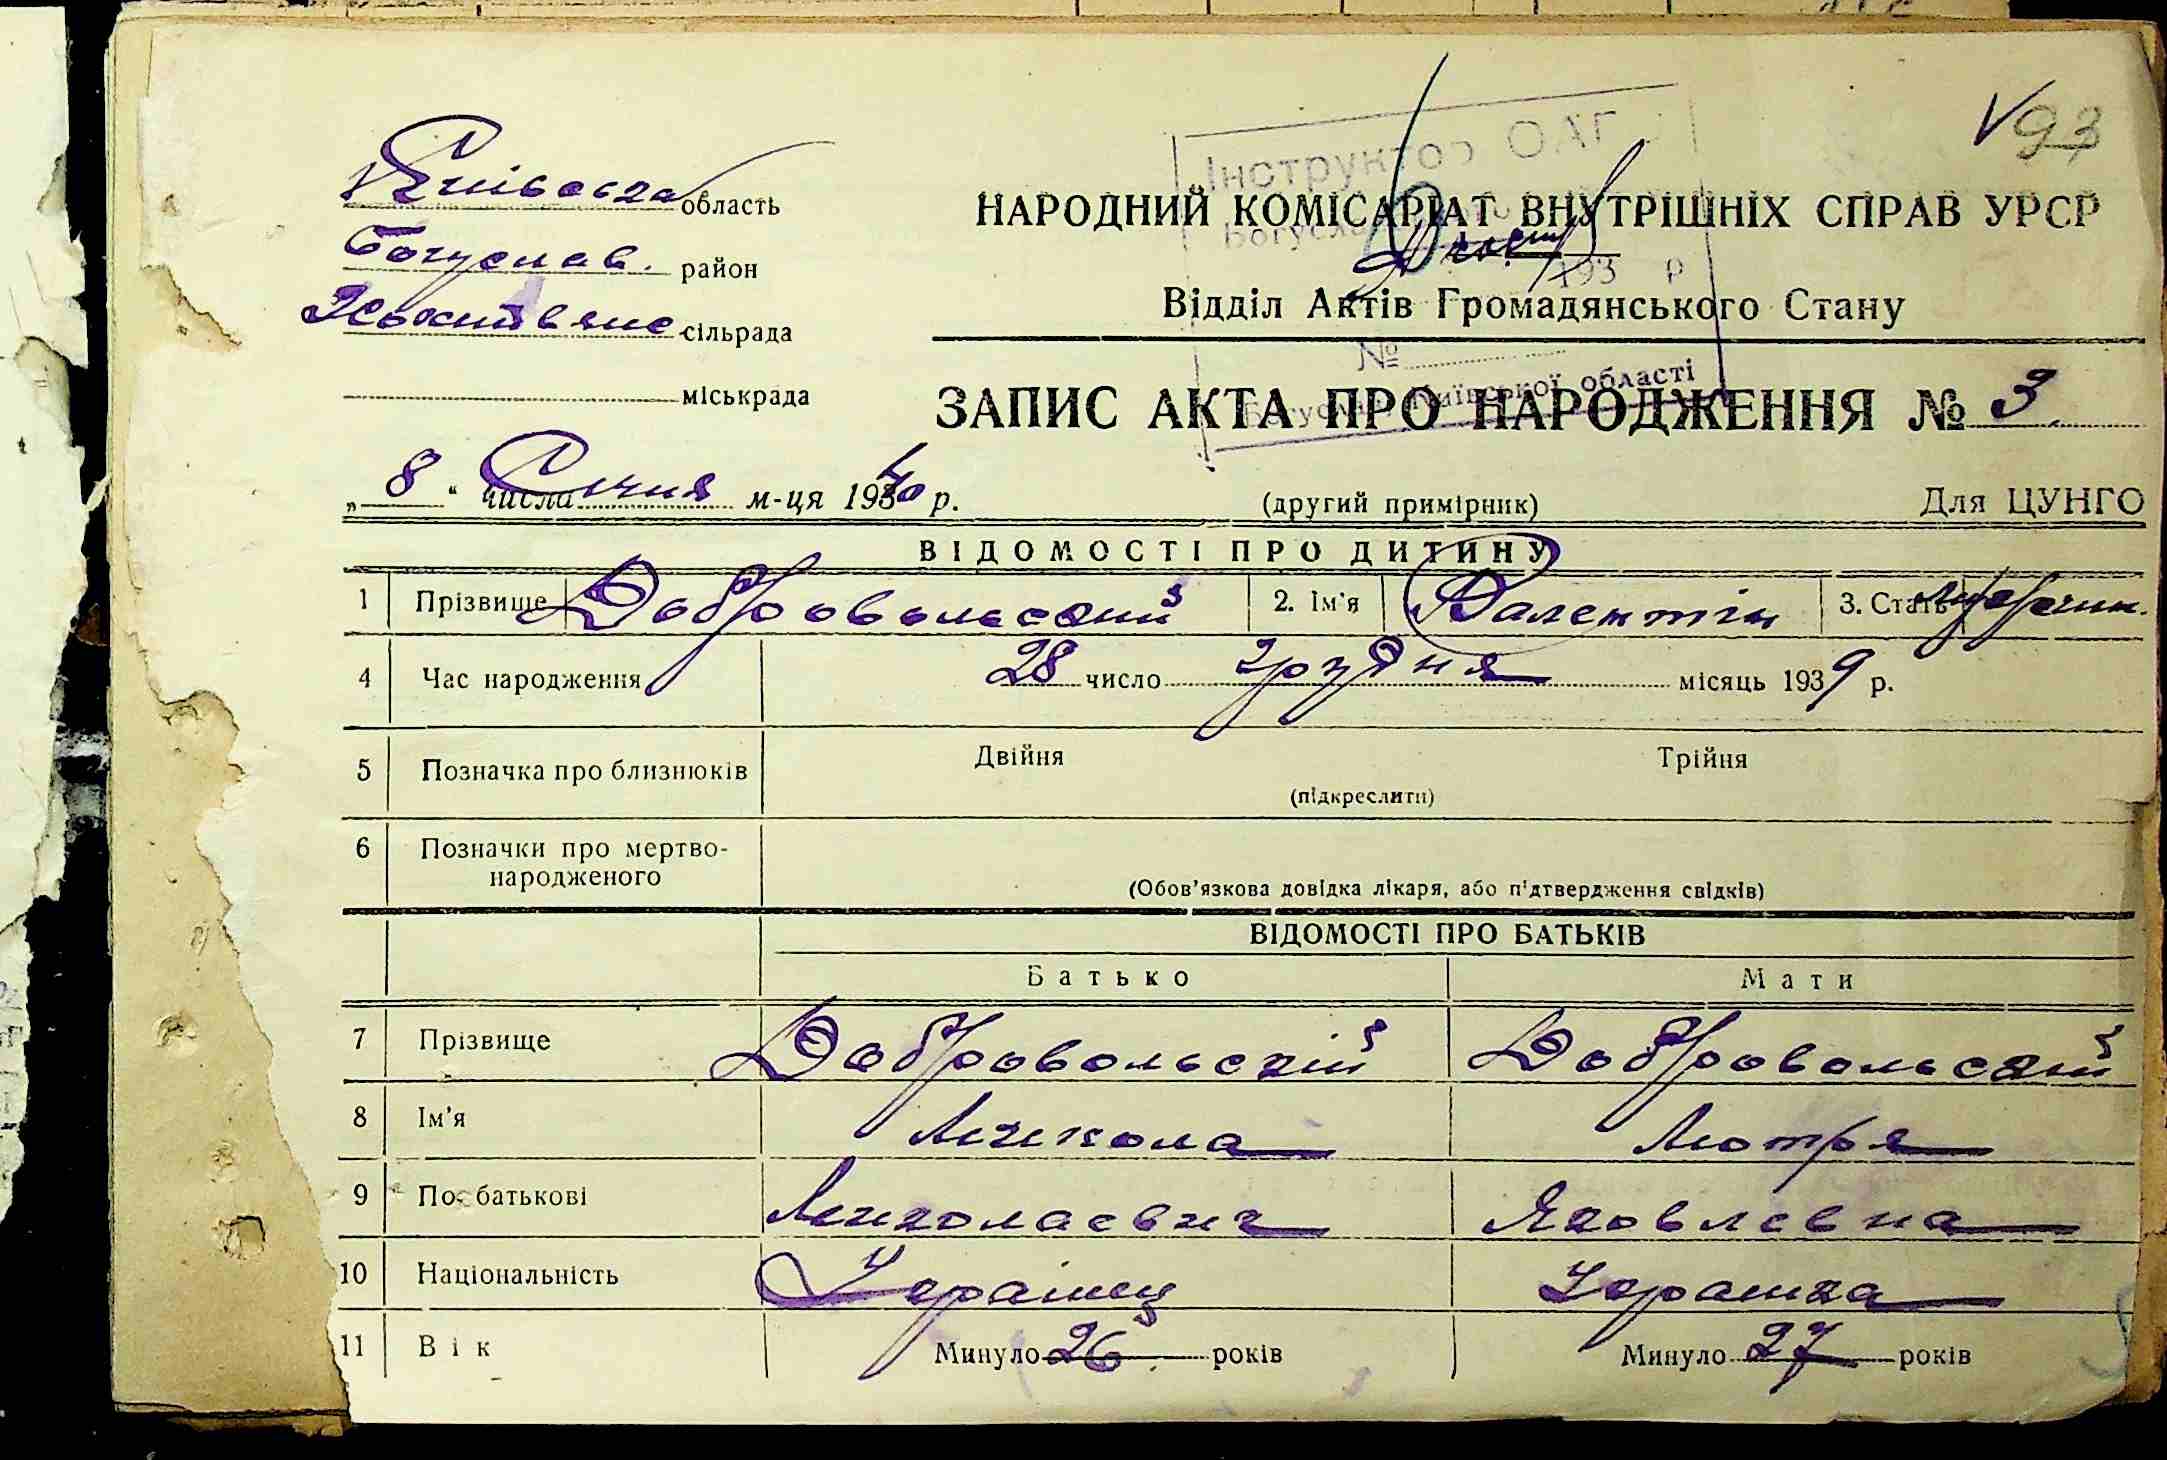 93
Інструктор ОАГ
Київська область
НАРОДНИЙ КОМІСАРІАТ ВНУТРІШНІХ СПРАВ УРСР
Богуслав. район
193 р
сільрада
Відділ Актів Громадянського Стану
№
міськрада
Богуслав Київської області
ЗАПИС АКТА ПРО НАРОДЖЕННЯ № 3.
„ 8 “ числа Січня м-ця 1940 р.
(другий примірник)
Для ЦУНГО
ВІДОМОСТІ ПРО ДИТИНУ
1 Прізвище Добровольский 2. Ім'я Валентін 3. Стать
4 Час народження 28 число грудня місяць 1939 р.
5 Позначка про близнюків Двійня Трійня
(підкреслити)
6 Позначки про мертво-
народженого
(Обов'язкова довідка лікаря, або підтвердження свідків)
ВІДОМОСТІ ПРО БАТЬКІВ
Батько Мати
7 Прізвище Добровольскій Добровольский
8 Ім'я Микола Мотря
9 По батькові Миколаєвич Яковлєвна
10 Національність Україиец Украінка
11 Вік Минуло 26 років Минуло 27 років